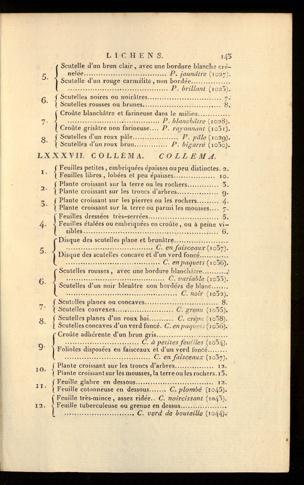 LICHENS. 143
5. Scutelle d'un brun clair, avec une bordure blanche cré-
nelée............ P. jaunâtre (1027).
Scutelle d'un rouge carmélite, non bordée............
............ P. brillant (1025).
6. Scutelles noires ou noirâtres............ 7.
Scutelles rousses ou brunes............ 8.
7. Croûte blanchâtre et farineuse dans le milieu............
............ P. blanchâtre (1028).
Croûte grisâtre non farineuse.... P. rayonnant (1031).
8. Scutelles d'un roux pâle............ P. pâle (1029).
Scutelles d'un roux brun............ P. bigarré (1030).
LXXXVII. COLLÉMA. COLLEMA.
1. Feuilles petites, embriquées épaisses ou peu distinctes. 2.
Feuilles libres, lobées et peu épaisses............ 10.
2. Plante croissant sur la terre ou les rochers............ 3.
Plante croissant sur les troncs d'arbres............ 9.
3. Plante croissant sur les pierres ou les rochers............ 4.
Plante croissant sur la terre ou parmi les mousses.... 7.
4. Feuilles dressées très-serrées............ 5.
Feuilles étalées ou embriquées en croûte, ou à peine vi-
sibles............ 6.
5. Disque des scutelles plane et brunâtre............
............ C. en faisceaux (1037).
Disque des scutelles concave et d'un verd foncé............
............ C. en paquets (1036).
6. Scutelles rousses, avec une bordure blanchâtre............
............ C. variable (1033).
Scutelles d'un noir bleuâtre non bordées de blanc......
............ C. noir (1032).
7. Scutelles planes ou concaves............ 8.
Scutelles convexes............ C. grenu (1035).
8. Scutelles planes d'un roux bai............ C. crêpu (1038).
Scutelles concaves d'un verd foncé. C. en paquets (1036).
9. Croûte adhérente d'un brun gris............
............ C. à petites feuilles (1034).
Folioles disposées en faisceaux et d'un verd foncé......
............ C. en faisceaux (1037).
10. Plante croissant sur les troncs d'arbres............ 12.
Plante croissant sur les mousses, la terre ou les rochers. 15.
11. Feuille glabre en dessous............ 12.
Feuille cotonneuse en dessous.... C. plombé (1045).
12. Feuille très-mince, assez ridée.. C. noircissant (1043).
Feuille tuberculeuse ou grenue en dessus............
............ C. verd de bouteille (1044).